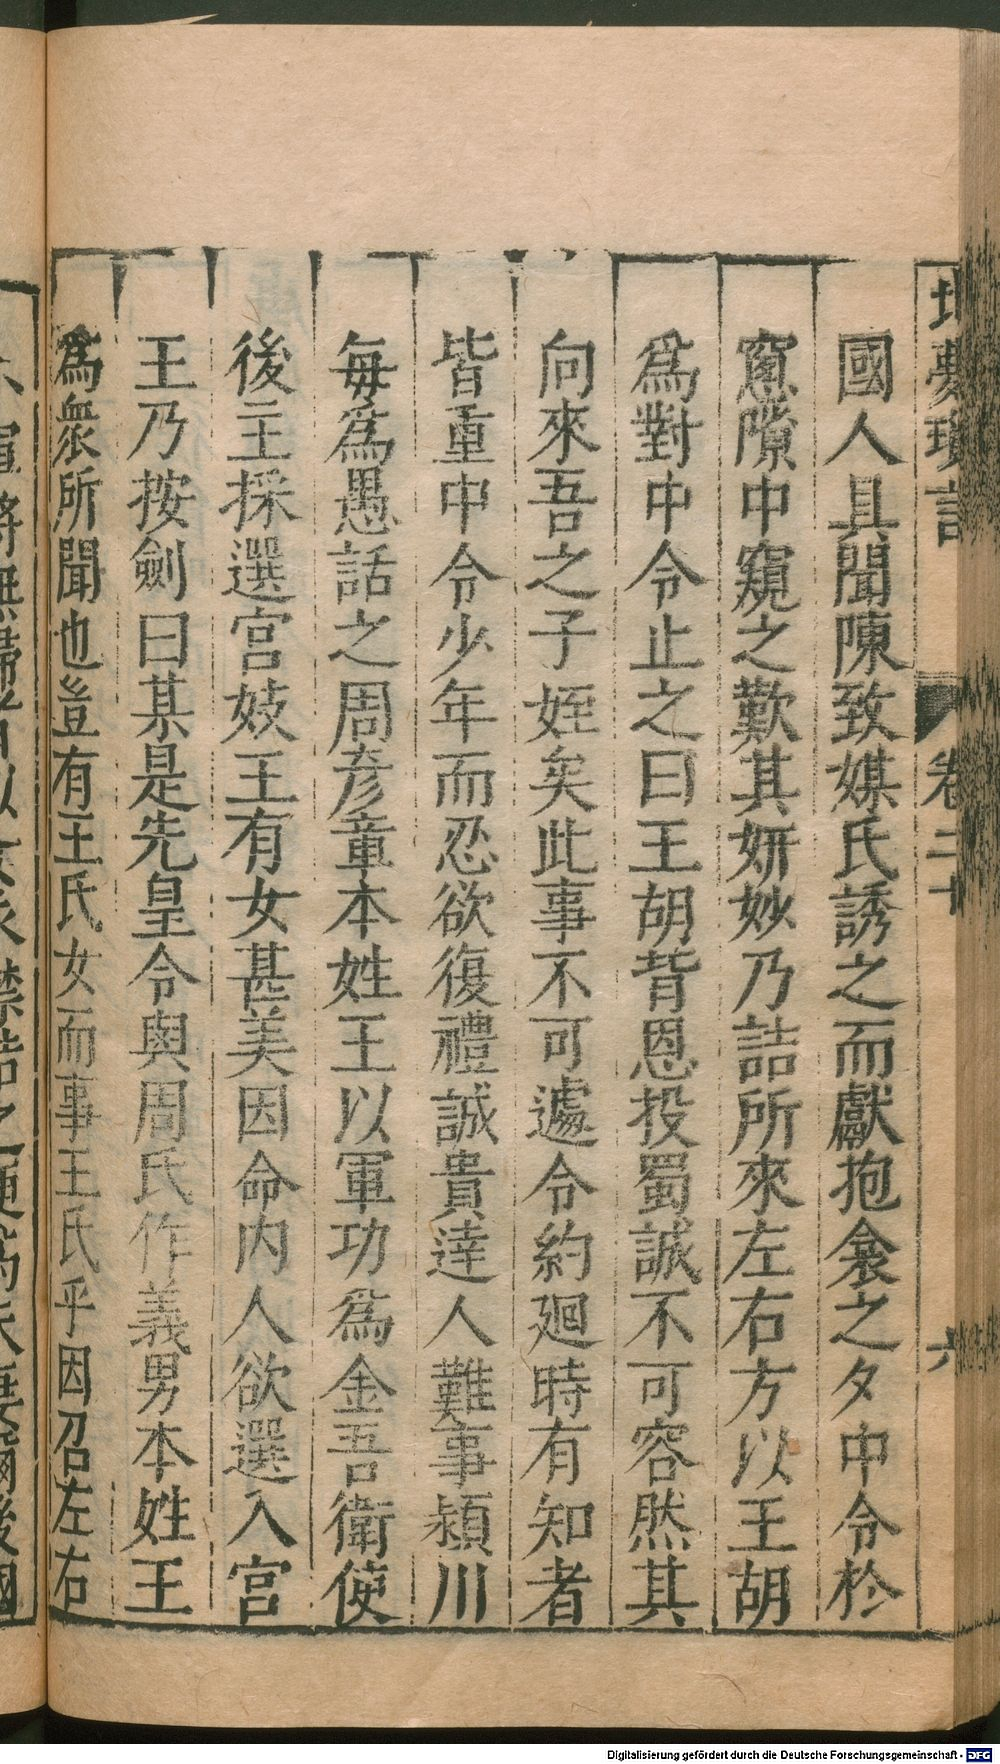 國人具聞陳致媒氏誘之而獻抱衾之夕中令於
窻隙中窺之歎其妍妙乃詰所來左右方以王胡
爲對中令止之曰王胡背恩投蜀誠不可容然其
向來吾之子姪矣此事不可遽令約廻時有知者
皆重中令少年而忍欲復禮誠貴達人難事潁川
每爲愚話之周彥章本姓王以軍功爲金吾衛使
後主採選宮妓王有女甚美因命内人欲選入宮
王乃按劍曰某是先皇令與周氏作義男本姓王
爲衆所聞也豈有王氏女而事王氏乎因召左右
夢瑣言
卷二十
六
Digitalisierung gefördert durch die Deutsche Forschungsgemeinschaft - DFG